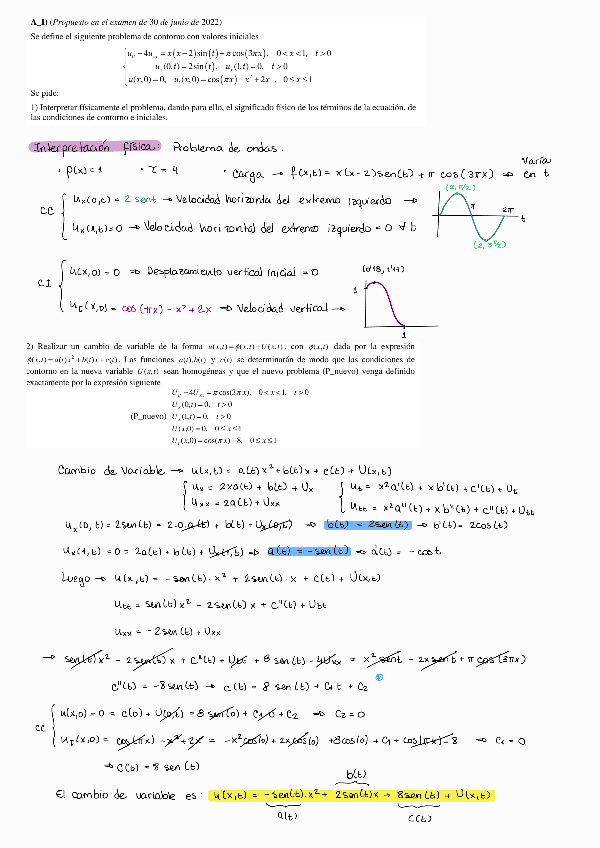 A_I) (Propuesto en el examen de 30 de junio de 2022)
Se define el siguiente problema de contorno con valores iniciales
u_tt − 4u_xx = x(x−2)sin(t) + π cos(3πx), 0 < x < 1, t > 0
u_x(0,t) = 2sin(t), u_x(1,t) = 0, t > 0
u(x,0) = 0, u_t(x,0) = cos(πx) − x² + 2x , 0 ≤ x ≤ 1
Se pide:
1) Interpretar físicamente el problema, dando para ello, el significado físico de los términos de la ecuación, de
las condiciones de contorno e iniciales.
Interpretación física: Problema de ondas.
· ρ(x) = 1 · τ = 4 · Carga → f(x,t) = x(x-2)sen(t) + π cos(3πx) ⇒ Varía en t
CC u_x(0,t) = 2 sent → Velocidad horizonta del extremo izquierdo →
u_x(1,t) = 0 → Velocidad horizontal del extremo izquierdo = 0 ∀ t
(2, π/2)
π
2π
t
(2, 3π/2)
CI u(x,0) = 0 ⇒ Desplazamiento vertical inicial = 0
u_t(x,0) = cos(πx) - x² + 2x ⇒ Velocidad vertical →
(0'18, 1'17)
1
1
2) Realizar un cambio de variable de la forma u(x,t) = ϕ(x,t) + U(x,t), con ϕ(x,t) dada por la expresión
ϕ(x,t) = a(t)x² + b(t)x + c(t). Las funciones a(t), b(t) y c(t) se determinarán de modo que las condiciones de
contorno en la nueva variable U(x,t) sean homogéneas y que el nuevo problema (P_nuevo) venga definido
exactamente por la expresión siguiente
U_tt − 4U_xx = π cos(3πx), 0 < x < 1, t > 0
U_x(0,t) = 0, t > 0
(P_nuevo) U_x(1,t) = 0, t > 0
U(x,0) = 0, 0 ≤ x ≤ 1
U_t(x,0) = cos(πx) − 8, 0 ≤ x ≤ 1
Cambio de Variable → u(x,t) = a(t)x² + b(t)x + c(t) + U(x,t)
u_x = 2xa(t) + b(t) + U_x u_t = x²a'(t) + xb'(t) + c'(t) + U_t
u_xx = 2a(t) + U_xx u_tt = x²a''(t) + xb''(t) + c''(t) + U_tt
u_x(0,t) = 2sen(t) = 2·0·a(t) + b(t) + U_x(0,t) ⇒ b(t) = 2sen(t) → b'(t) = 2cos(t)
u_x(1,t) = 0 = 2a(t) + b(t) + U_x(1,t) ⇒ a(t) = -sen(t) → a'(t) = -cos t
Luego → u(x,t) = -sen(t)·x² + 2sen(t)·x + c(t) + U(x,t)
u_tt = sen(t)x² - 2sen(t)x + c''(t) + U_tt
u_xx = -2sen(t) + U_xx
→ sen(t)x² - 2sen(t)x + c''(t) + U_tt + 8 sen(t) - 4U_xx = x² sent - 2x sent + π cos(3πx)
c''(t) = -8sen(t) → c(t) = 8 sen(t) + C₁t + C₂
CC u(x,0) = 0 = c(0) + U(0,t) = 8 sen(0) + C₁·0 + C₂ ⇒ C₂ = 0
u_t(x,0) = cos(πx) - x² + 2x = -x²cos(0) + 2xcos(0) + 8cos(0) + C₁ + cos(πx) - 8 ⇒ C₁ = 0
⇒ c(t) = 8 sen(t)
b(t)
El cambio de variable es: u(x,t) = -sen(t)·x² + 2sen(t)x + 8sen(t) + U(x,t)
a(t) c(t)